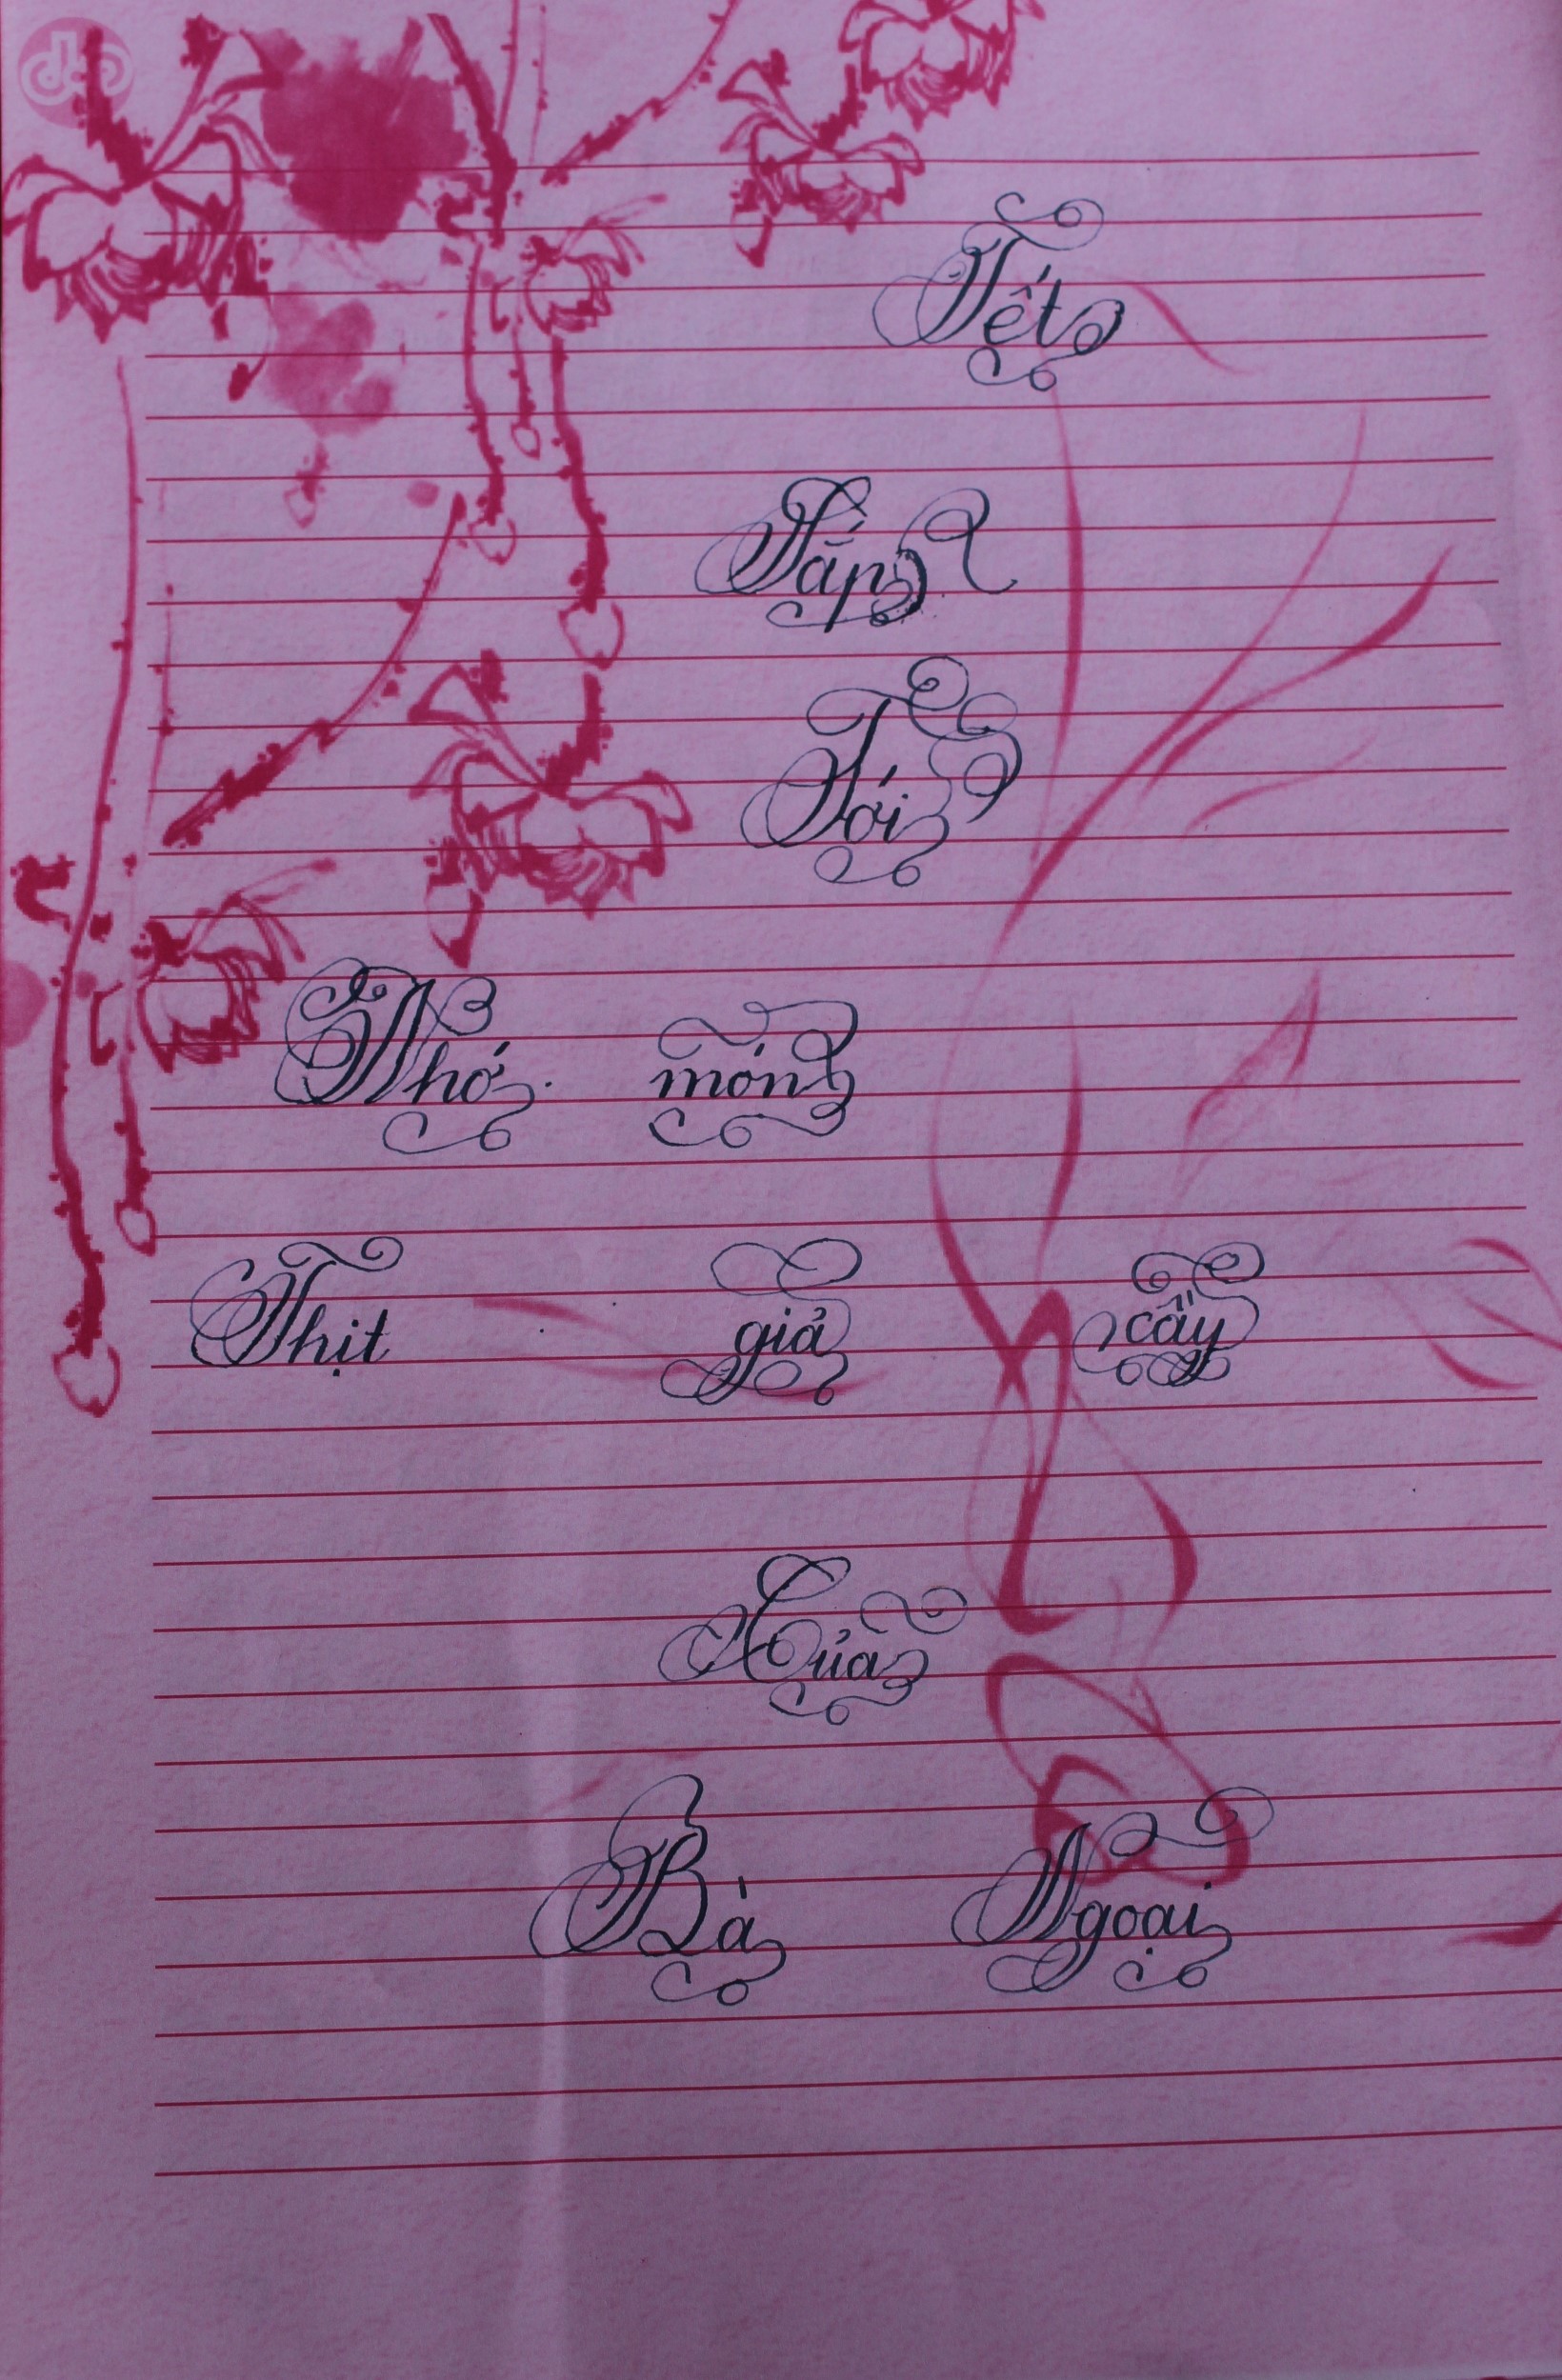 Tết
Sắp
Tới
Nhớ món
Thịt giả cầy
Của
Bà Ngoại